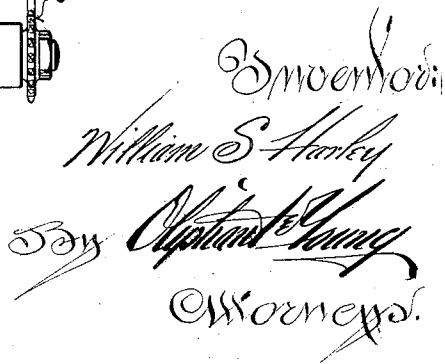 Inventor:
William S Harley
By Oliphant & Young
Attorneys.